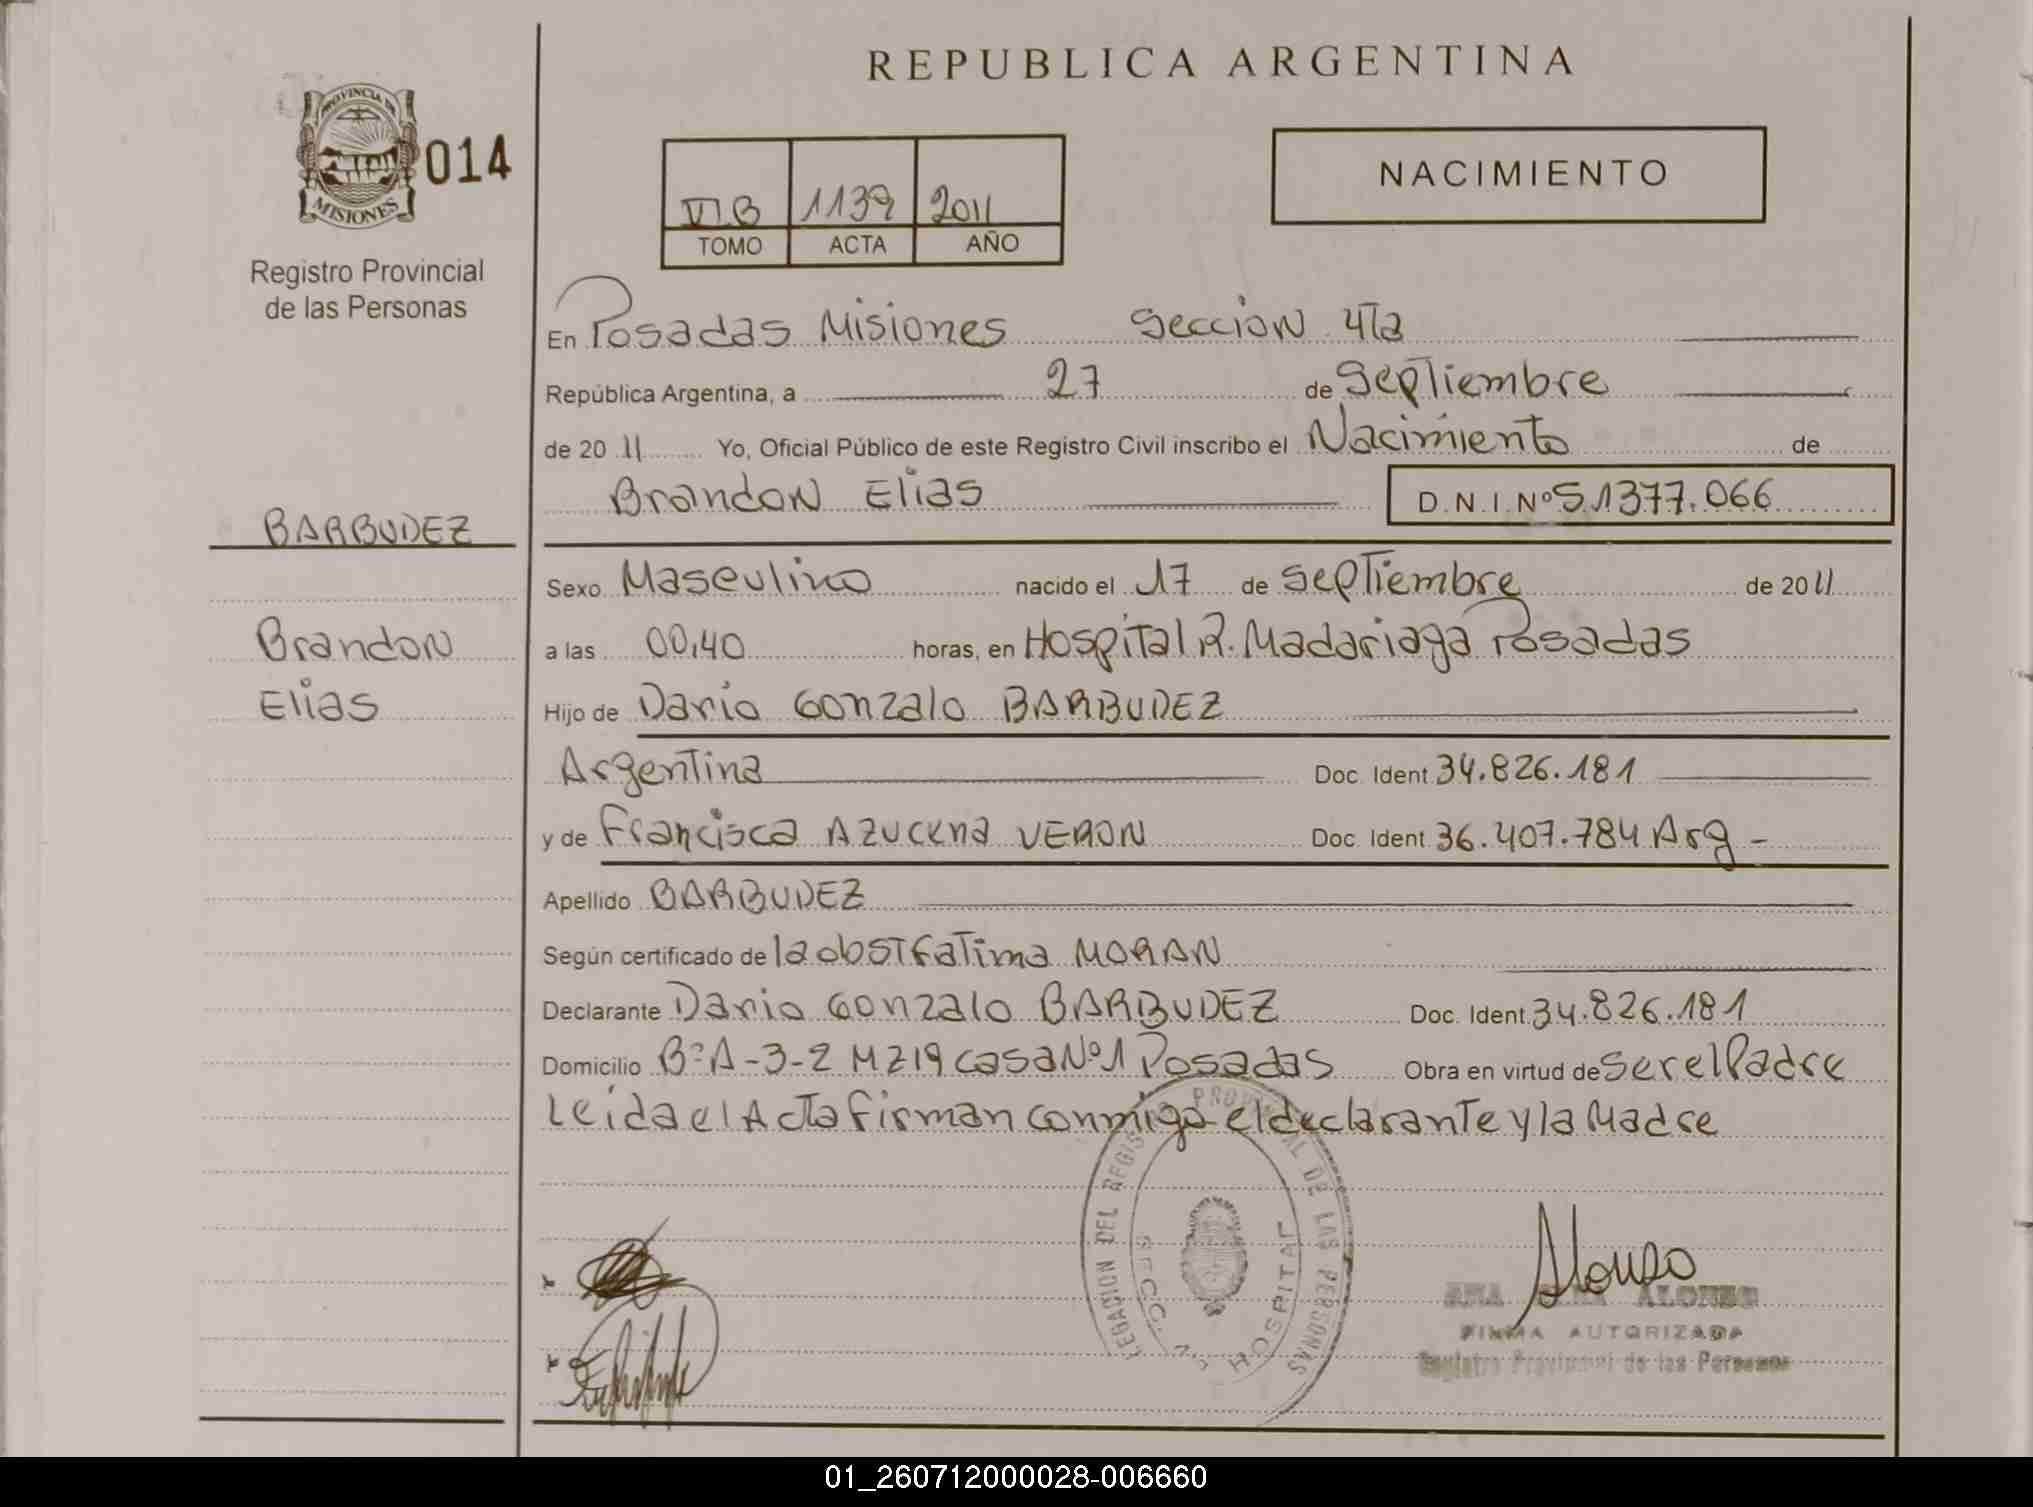 REPUBLICA ARGENTINA
PROVINCIA DE
MISIONES
014
Registro Provincial
de las Personas
VI B 1139 2011
TOMO ACTA AÑO
NACIMIENTO
En Posadas Misiones Seccion 4Ta
República Argentina, a 27 de Septiembre
de 2011 Yo, Oficial Público de este Registro Civil inscribo el Nacimiento de
Brandon Elias D.N.I. Nº 51377.066
BARBUDEZ
Brandon
Elias
Sexo Masculino nacido el 17 de Septiembre de 2011
a las 00,40 horas, en Hospital R. Madariaga Posadas
Hijo de Dario Gonzalo BARBUDEZ
Argentina Doc. Ident 34.826.181
y de Francisca Azucena VERON Doc. Ident 36.407.784 Arg -
Apellido BARBUDEZ
Según certificado de la obst Fatima MORAN
Declarante Dario Gonzalo BARBUDEZ Doc. Ident. 34.826.181
Domicilio Bº A-3-2 MZ 19 casa Nº 1 Posadas Obra en virtud de ser el Padre
Leida el Acta Firman conmigo el declarante y la Madre
DELEGACION DEL REGISTRO PROVINCIAL DE LAS PERSONAS
HOSPITAL
Alonso
ANA ALONSO
FIRMA AUTORIZADA
Registro Provincial de las Personas
01_260712000028-006660